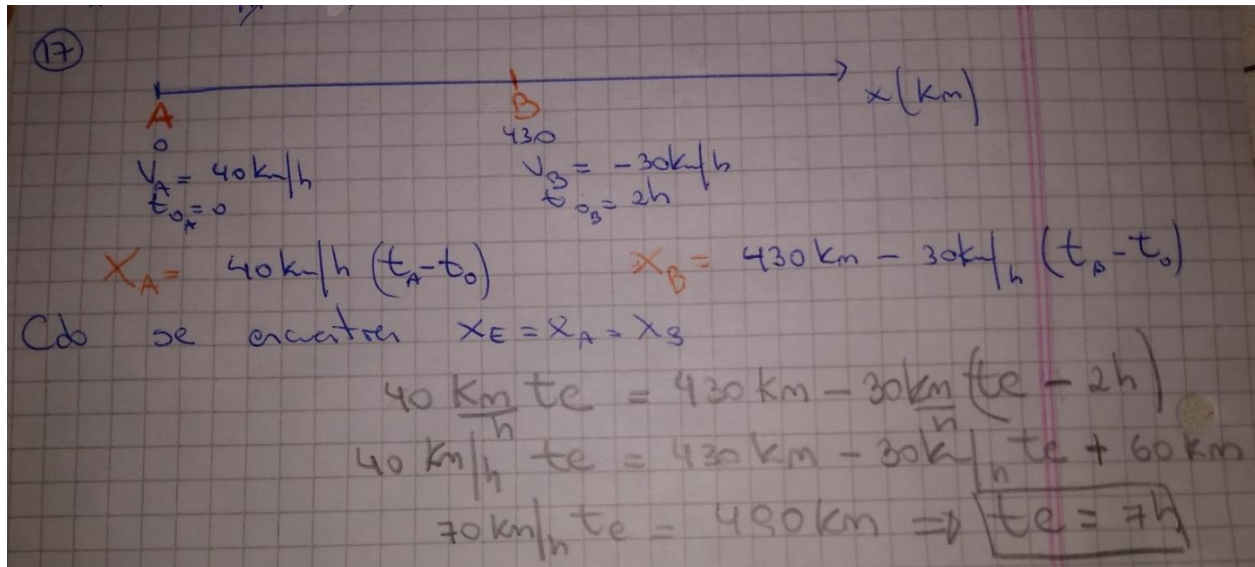 17
x (km)
A B
0 430
V_A = 40 km/h V_B = -30 km/h
t_{0_A} = 0 t_{0_B} = 2h
X_A = 40 km/h (t_A - t_0) X_B = 430 km - 30 km/h (t_B - t_0)
Cdo se encuentren X_E = X_A = X_B
40 km/h te = 430 km - 30 km/h (te - 2h)
40 km/h te = 430 km - 30 k/h te + 60 km
70 km/h te = 490 km ⇒ te = 7h